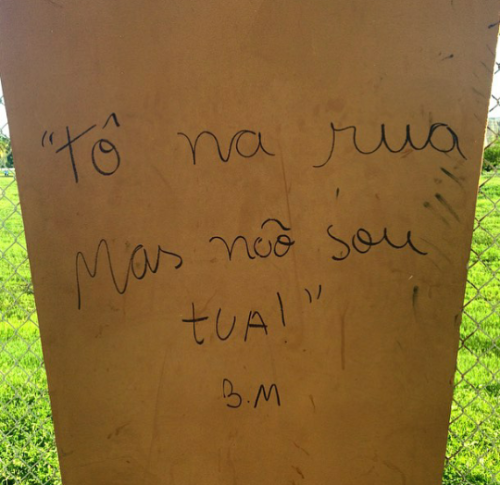 "Tô na rua
Mas não sou
tUA!"
B.M